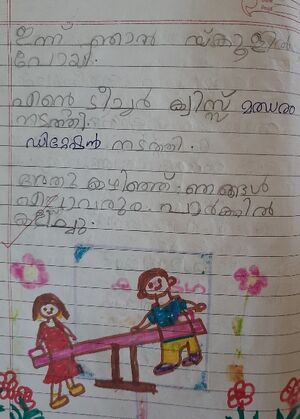 ഇന്ന് ഞാൻ സ്കൂളിൽ
പോയി.
എന്റെ ടീച്ചർ ക്വിസ്സ് മത്സരം
നടത്തി.
ഡിക്ടേഷൻ നടത്തി.
അതു കഴിഞ്ഞ് ഞങ്ങൾ
എല്ലാവരും പാർക്കിൽ
കളിച്ചു.